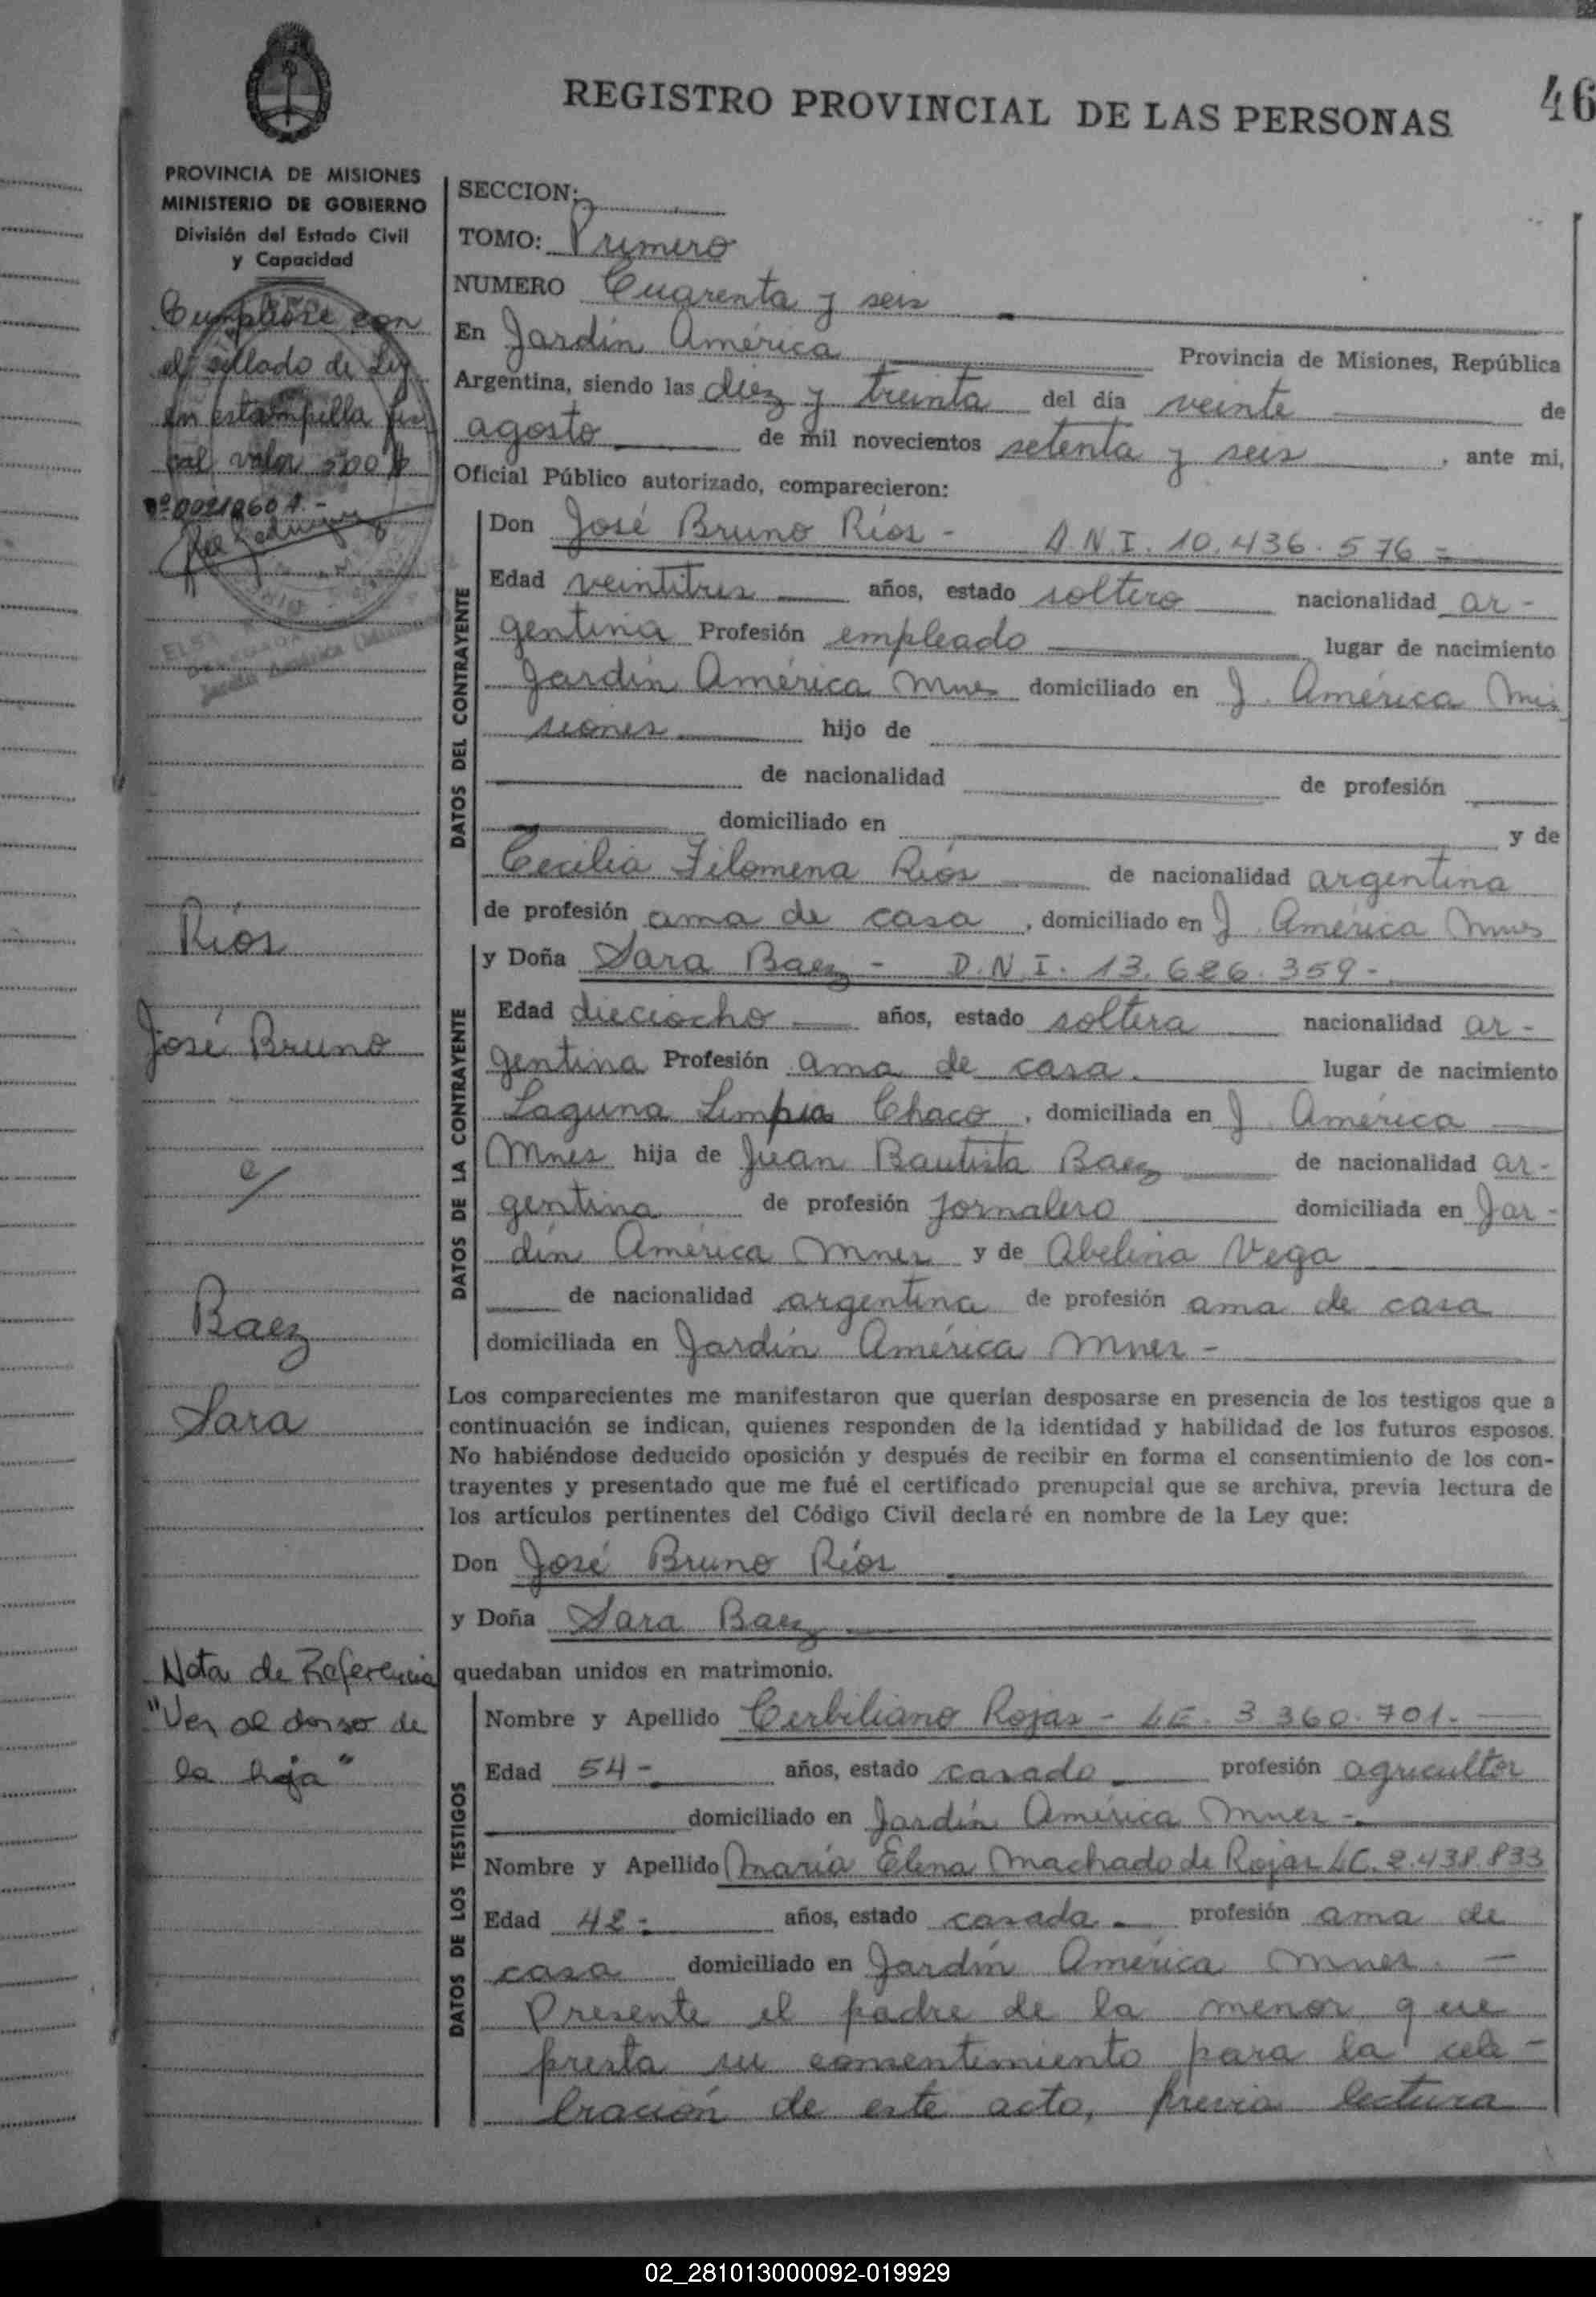 REGISTRO PROVINCIAL DE LAS PERSONAS
46
PROVINCIA DE MISIONES
MINISTERIO DE GOBIERNO
División del Estado Civil
y Capacidad
Cumplióse con
el sellado de Ley
en estampilla fis
cal valor 500 $
SECCION:
TOMO: Primero
NUMERO Cuarenta y seis
En Jardín América Provincia de Misiones, República
Argentina, siendo las diez y treinta del día veinte de
agosto de mil novecientos setenta y seis, ante mi,
Oficial Público autorizado, comparecieron:
DATOS DEL CONTRAYENTE
Don José Bruno Ríos - D.N.I. 10.436.576 =
Edad veintitres años, estado soltero nacionalidad ar-
gentina Profesión empleado lugar de nacimiento
Jardín América Mnes domiciliado en J. América Mi
siones hijo de
de nacionalidad de profesión
domiciliado en y de
Cecilia Filomena Ríos de nacionalidad argentina
de profesión ama de casa, domiciliado en J. América Mnes
DATOS DE LA CONTRAYENTE
y Doña Sara Baez - D.N.I. 13.686.359-
Edad dieciocho años, estado soltera nacionalidad ar-
gentina Profesión ama de casa. lugar de nacimiento
Laguna Limpia Chaco, domiciliada en J. América
Mnes hija de Juan Bautista Baez de nacionalidad ar-
gentina de profesión Jornalero domiciliada en Jar-
dín América Mnes y de Abelina Vega
de nacionalidad argentina de profesión ama de casa
domiciliada en Jardín América Mnes -
Los comparecientes me manifestaron que querían desposarse en presencia de los testigos que a
continuación se indican, quienes responden de la identidad y habilidad de los futuros esposos.
No habiéndose deducido oposición y después de recibir en forma el consentimiento de los con-
trayentes y presentado que me fué el certificado prenupcial que se archiva, previa lectura de
los artículos pertinentes del Código Civil declaré en nombre de la Ley que:
Don José Bruno Ríos
y Doña Sara Baez
quedaban unidos en matrimonio.
DATOS DE LOS TESTIGOS
Nombre y Apellido Cerbiliano Rojas - L.E. 3.360.701.
Edad 54- años, estado casado profesión agricultor
domiciliado en Jardín América Mnes -
Nombre y Apellido María Elena Machado de Rojas L.C. 2.438.833
Edad 42- años, estado casada profesión ama de
casa domiciliado en Jardín América Mnes. -
Presente el padre de la menor que
presta su consentimiento para la cele-
bración de este acto, previa lectura
Ríos
José Bruno
c/
Baez
Sara
Nota de Referencia
"Ver al dorso de
la hoja"
02_281013000092-019929